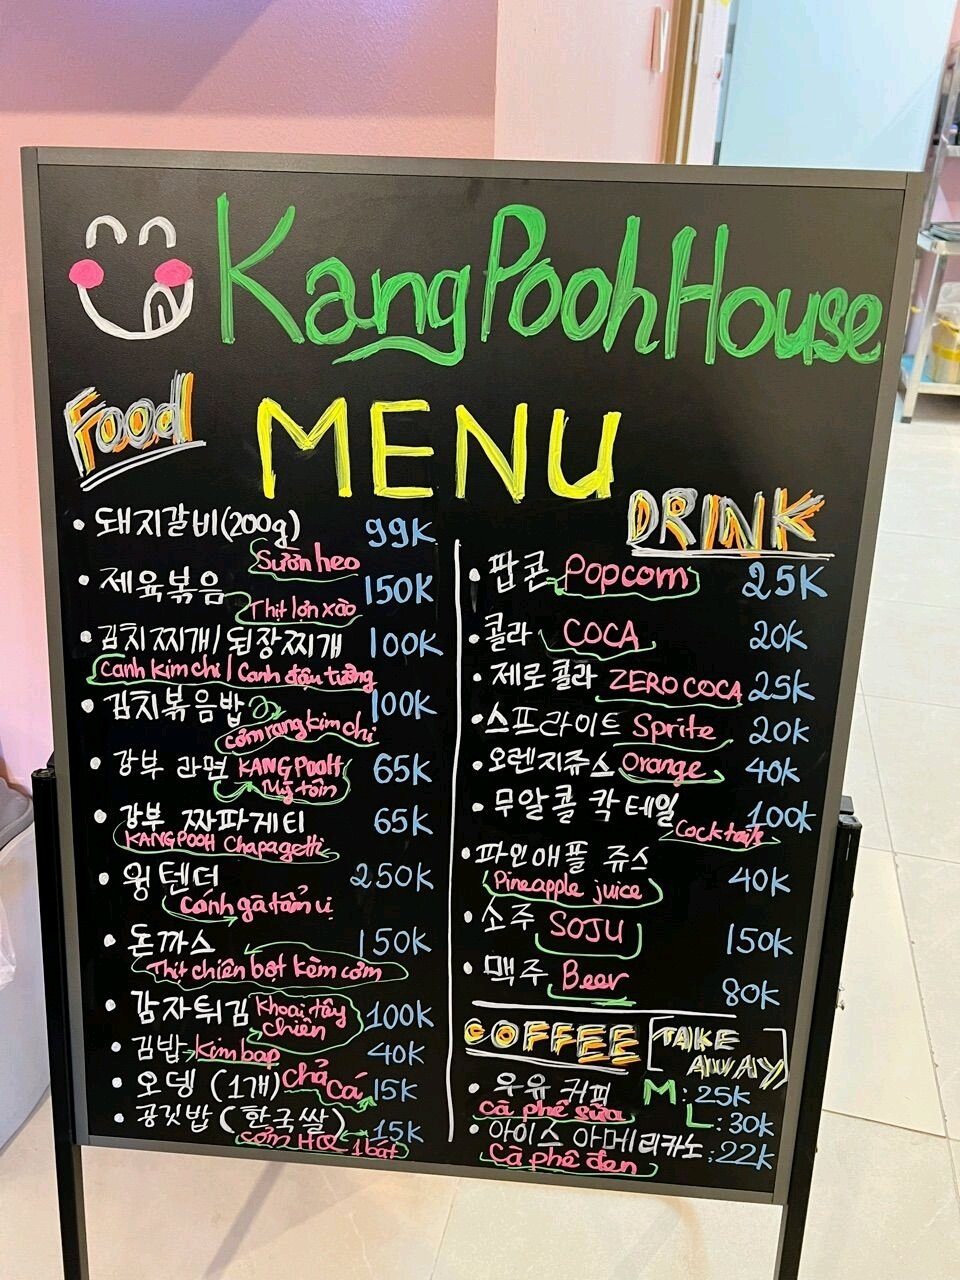 KangPoohHouse
Food
MENU
돼지갈비(200g) 99K
Sườn heo
제육볶음 150K
Thịt lợn xào
김치찌개/된장찌개 100K
Canh kim chi / Canh đậu tương
김치볶음밥 100K
cơm rang kim chi
강부 라면 KANG POOH 65K
Mỳ tôm
강부 짜파게티 65K
KANGPOOH Chapagetti
윙텐더 250K
Cánh gà tẩm vị
돈까스 150K
Thịt chiên bột kèm cơm
감자튀김 Khoai tây 100K
chiên
김밥 Kim bap 40K
오뎅 (1개) chả cá 15K
공깃밥 (한국쌀) 15K
cơm HQ 1 bát
DRINK
팝콘 Popcorn 25K
콜라 COCA 20K
제로콜라 ZERO COCA 25K
스프라이트 Sprite 20K
오렌지쥬스 Orange 40K
무알콜 칵테일 100k
Cocktails
파인애플 쥬스 40K
Pineapple juice
소주 SOJU 150K
맥주 Beer 80K
COFFEE [TAKE
AWAY]
우유 커피 M: 25K
Cà phê sữa L: 30k
아이스 아메리카노: 22K
Cà phê đen